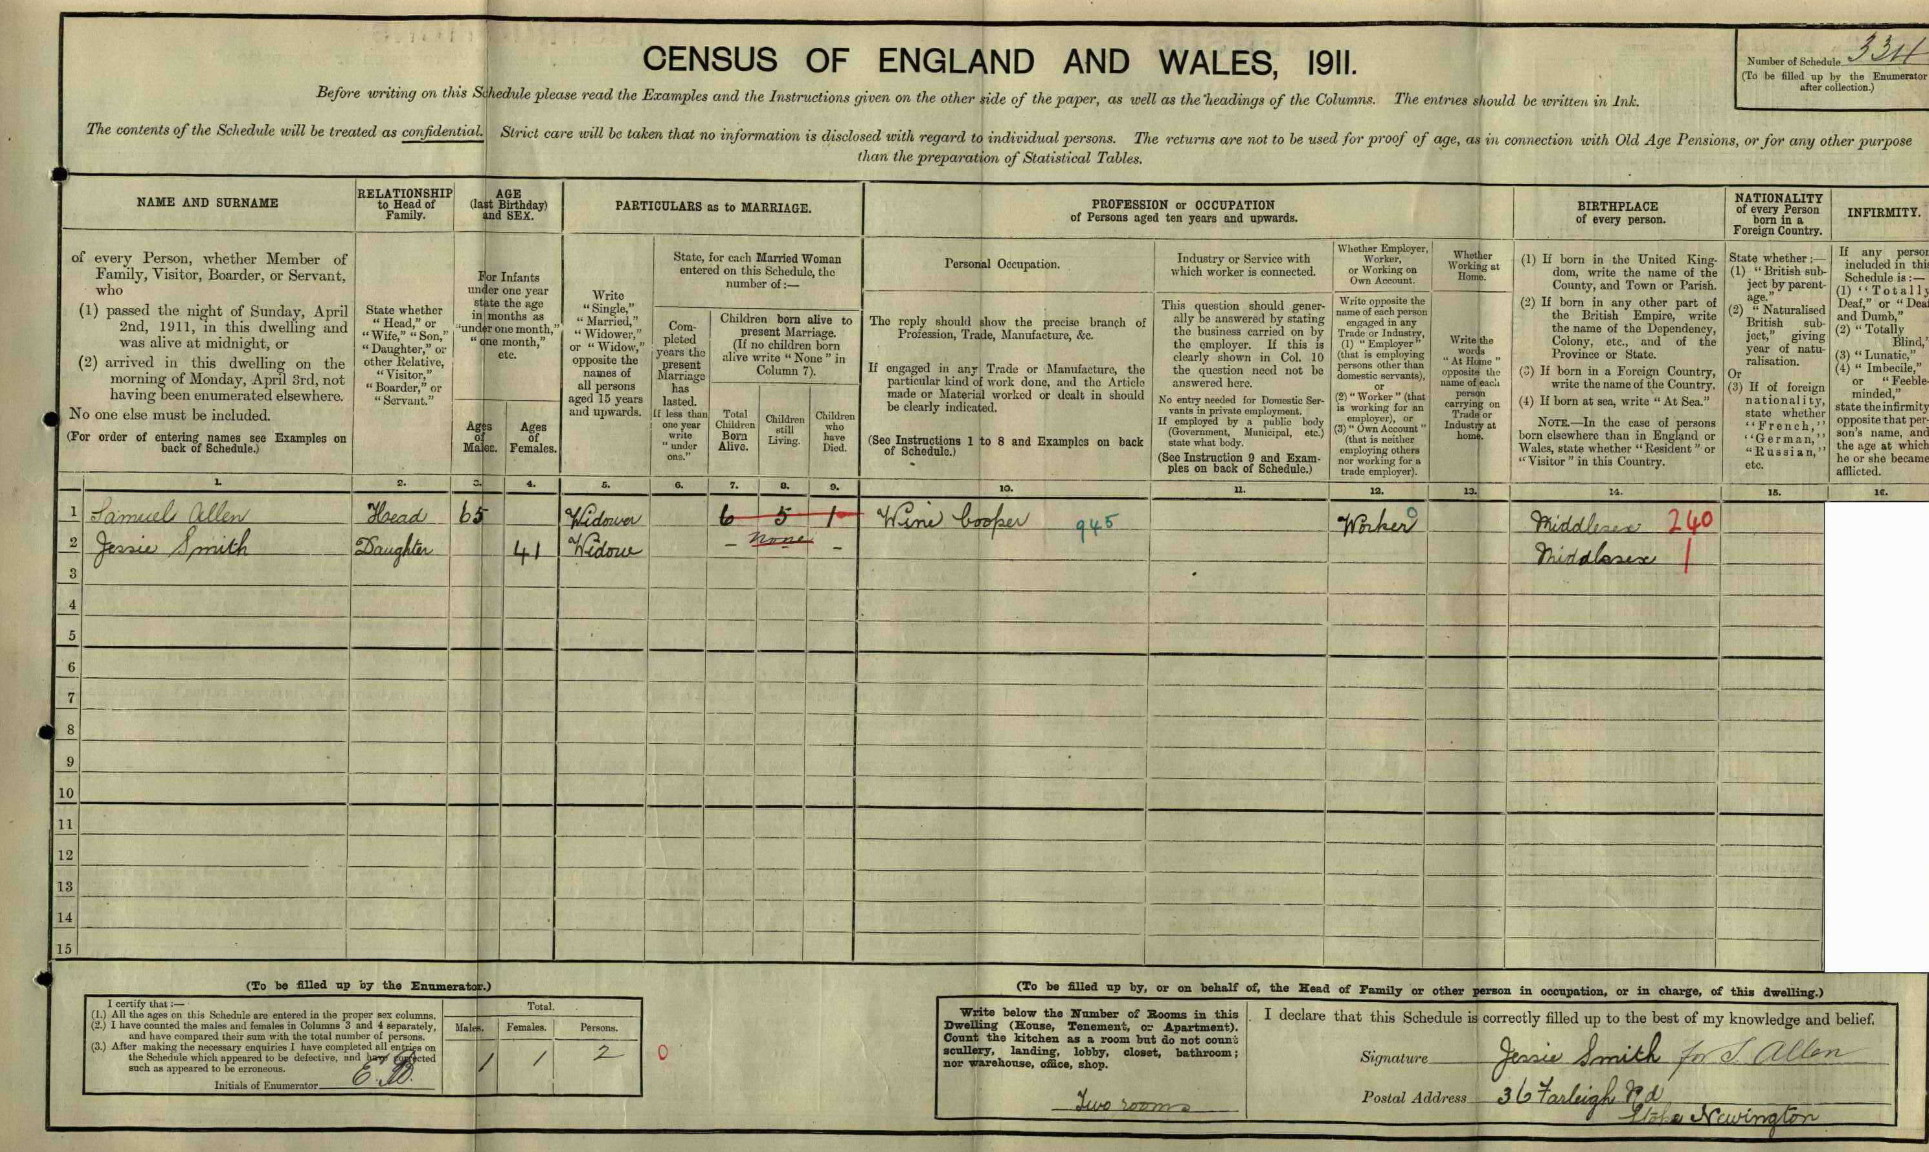 CENSUS OF ENGLAND AND WALES, 1911.
Number of Schedule 334
(To be filled up by the Enumerator
after collection.)
Before writing on this Schedule please read the Examples and the Instructions given on the other side of the paper, as well as the headings of the Columns. The entries should be written in Ink.
The contents of the Schedule will be treated as confidential. Strict care will be taken that no information is disclosed with regard to individual persons. The returns are not to be used for proof of age, as in connection with Old Age Pensions, or for any other purpose
than the preparation of Statistical Tables.
NAME AND SURNAME
of every Person, whether Member of
Family, Visitor, Boarder, or Servant,
who
(1) passed the night of Sunday, April
2nd, 1911, in this dwelling and
was alive at midnight, or
(2) arrived in this dwelling on the
morning of Monday, April 3rd, not
having been enumerated elsewhere.
No one else must be included.
(For order of entering names see Examples on
back of Schedule.)
RELATIONSHIP
to Head of
Family.
State whether
"Head," or
"Wife," "Son,"
"Daughter," or
other Relative,
"Visitor,"
"Boarder," or
"Servant."
AGE
(last Birthday)
and SEX.
For Infants
under one year
state the age
in months as
"under one month,"
"one month,"
etc.
Ages
of
Males.
Ages
of
Females.
PARTICULARS as to MARRIAGE.
Write
"Single,"
"Married,"
"Widower,"
or "Widow,"
opposite the
names of
all persons
aged 15 years
and upwards.
State, for each Married Woman
entered on this Schedule, the
number of:—
Com-
pleted
years the
present
Marriage
has
lasted.
If less than
one year
write
"under
one."
Children born alive to
present Marriage.
(If no children born
alive write "None" in
Column 7).
Total
Children
Born
Alive.
Children
still
Living.
Children
who
have
Died.
PROFESSION or OCCUPATION
of Persons aged ten years and upwards.
Personal Occupation.
The reply should show the precise branch of
Profession, Trade, Manufacture, &c.
If engaged in any Trade or Manufacture, the
particular kind of work done, and the Article
made or Material worked or dealt in should
be clearly indicated.
(See Instructions 1 to 8 and Examples on back
of Schedule.)
Industry or Service with
which worker is connected.
This question should gener-
ally be answered by stating
the business carried on by
the employer. If this is
clearly shown in Col. 10
the question need not be
answered here.
No entry needed for Domestic Ser-
vants in private employment.
If employed by a public body
(Government, Municipal, etc.)
state what body.
(See Instruction 9 and Exam-
ples on back of Schedule.)
Whether Employer,
Worker,
or Working on
Own Account.
Write opposite the
name of each person
engaged in any
Trade or Industry,
(1) "Employer"
(that is employing
persons other than
domestic servants),
or
(2) "Worker" (that
is working for an
employer), or
(3) "Own Account"
(that is neither
employing others
nor working for a
trade employer).
Whether
Working at
Home.
Write the
words
"At Home"
opposite the
name of each
person
carrying on
Trade or
Industry at
home.
BIRTHPLACE
of every person.
(1) If born in the United King-
dom, write the name of the
County, and Town or Parish.
(2) If born in any other part of
the British Empire, write
the name of the Dependency,
Colony, etc., and of the
Province or State.
(3) If born in a Foreign Country,
write the name of the Country.
(4) If born at sea, write "At Sea."
NOTE.—In the case of persons
born elsewhere than in England or
Wales, state whether "Resident" or
"Visitor" in this Country.
NATIONALITY
of every Person
born in a
Foreign Country.
State whether:—
(1) "British sub-
ject by parent-
age."
(2) "Naturalised
British sub-
ject," giving
year of natu-
ralisation.
Or
(3) If of foreign
nationality,
state whether
"French,"
"German,"
"Russian,"
etc.
INFIRMITY.
If any person
included in this
Schedule is:—
(1) "Totally
Deaf," or "Deaf
and Dumb,"
(2) "Totally
Blind,"
(3) "Lunatic,"
(4) "Imbecile,"
or "Feeble-
minded,"
state the infirmity
opposite that per-
son's name, and
the age at which
he or she became
afflicted.
1. 2. 3. 4. 5. 6. 7. 8. 9. 10. 11. 12. 13. 14. 15. 16.
1 Samuel Allen Head 65 Widower 6 5 1 Wine Cooper 945 Worker 0 Middlesex 240
2 Jessie Smith Daughter 41 Widow – none – Middlesex 1
3
4
5
6
7
8
9
10
11
12
13
14
15
(To be filled up by the Enumerator.)
I certify that:—
(1.) All the ages on this Schedule are entered in the proper sex columns.
(2.) I have counted the males and females in Columns 3 and 4 separately,
and have compared their sum with the total number of persons.
(3.) After making the necessary enquiries I have completed all entries on
the Schedule which appeared to be defective, and have corrected
such as appeared to be erroneous.
Initials of Enumerator E.B.
Total.
Males. Females. Persons.
1 1 2 0
(To be filled up by, or on behalf of, the Head of Family or other person in occupation, or in charge, of this dwelling.)
Write below the Number of Rooms in this
Dwelling (House, Tenement, or Apartment).
Count the kitchen as a room but do not count
scullery, landing, lobby, closet, bathroom;
nor warehouse, office, shop.
Two rooms
I declare that this Schedule is correctly filled up to the best of my knowledge and belief.
Signature Jessie Smith for S. Allen
Postal Address 36 Farleigh Rd
Stoke Newington